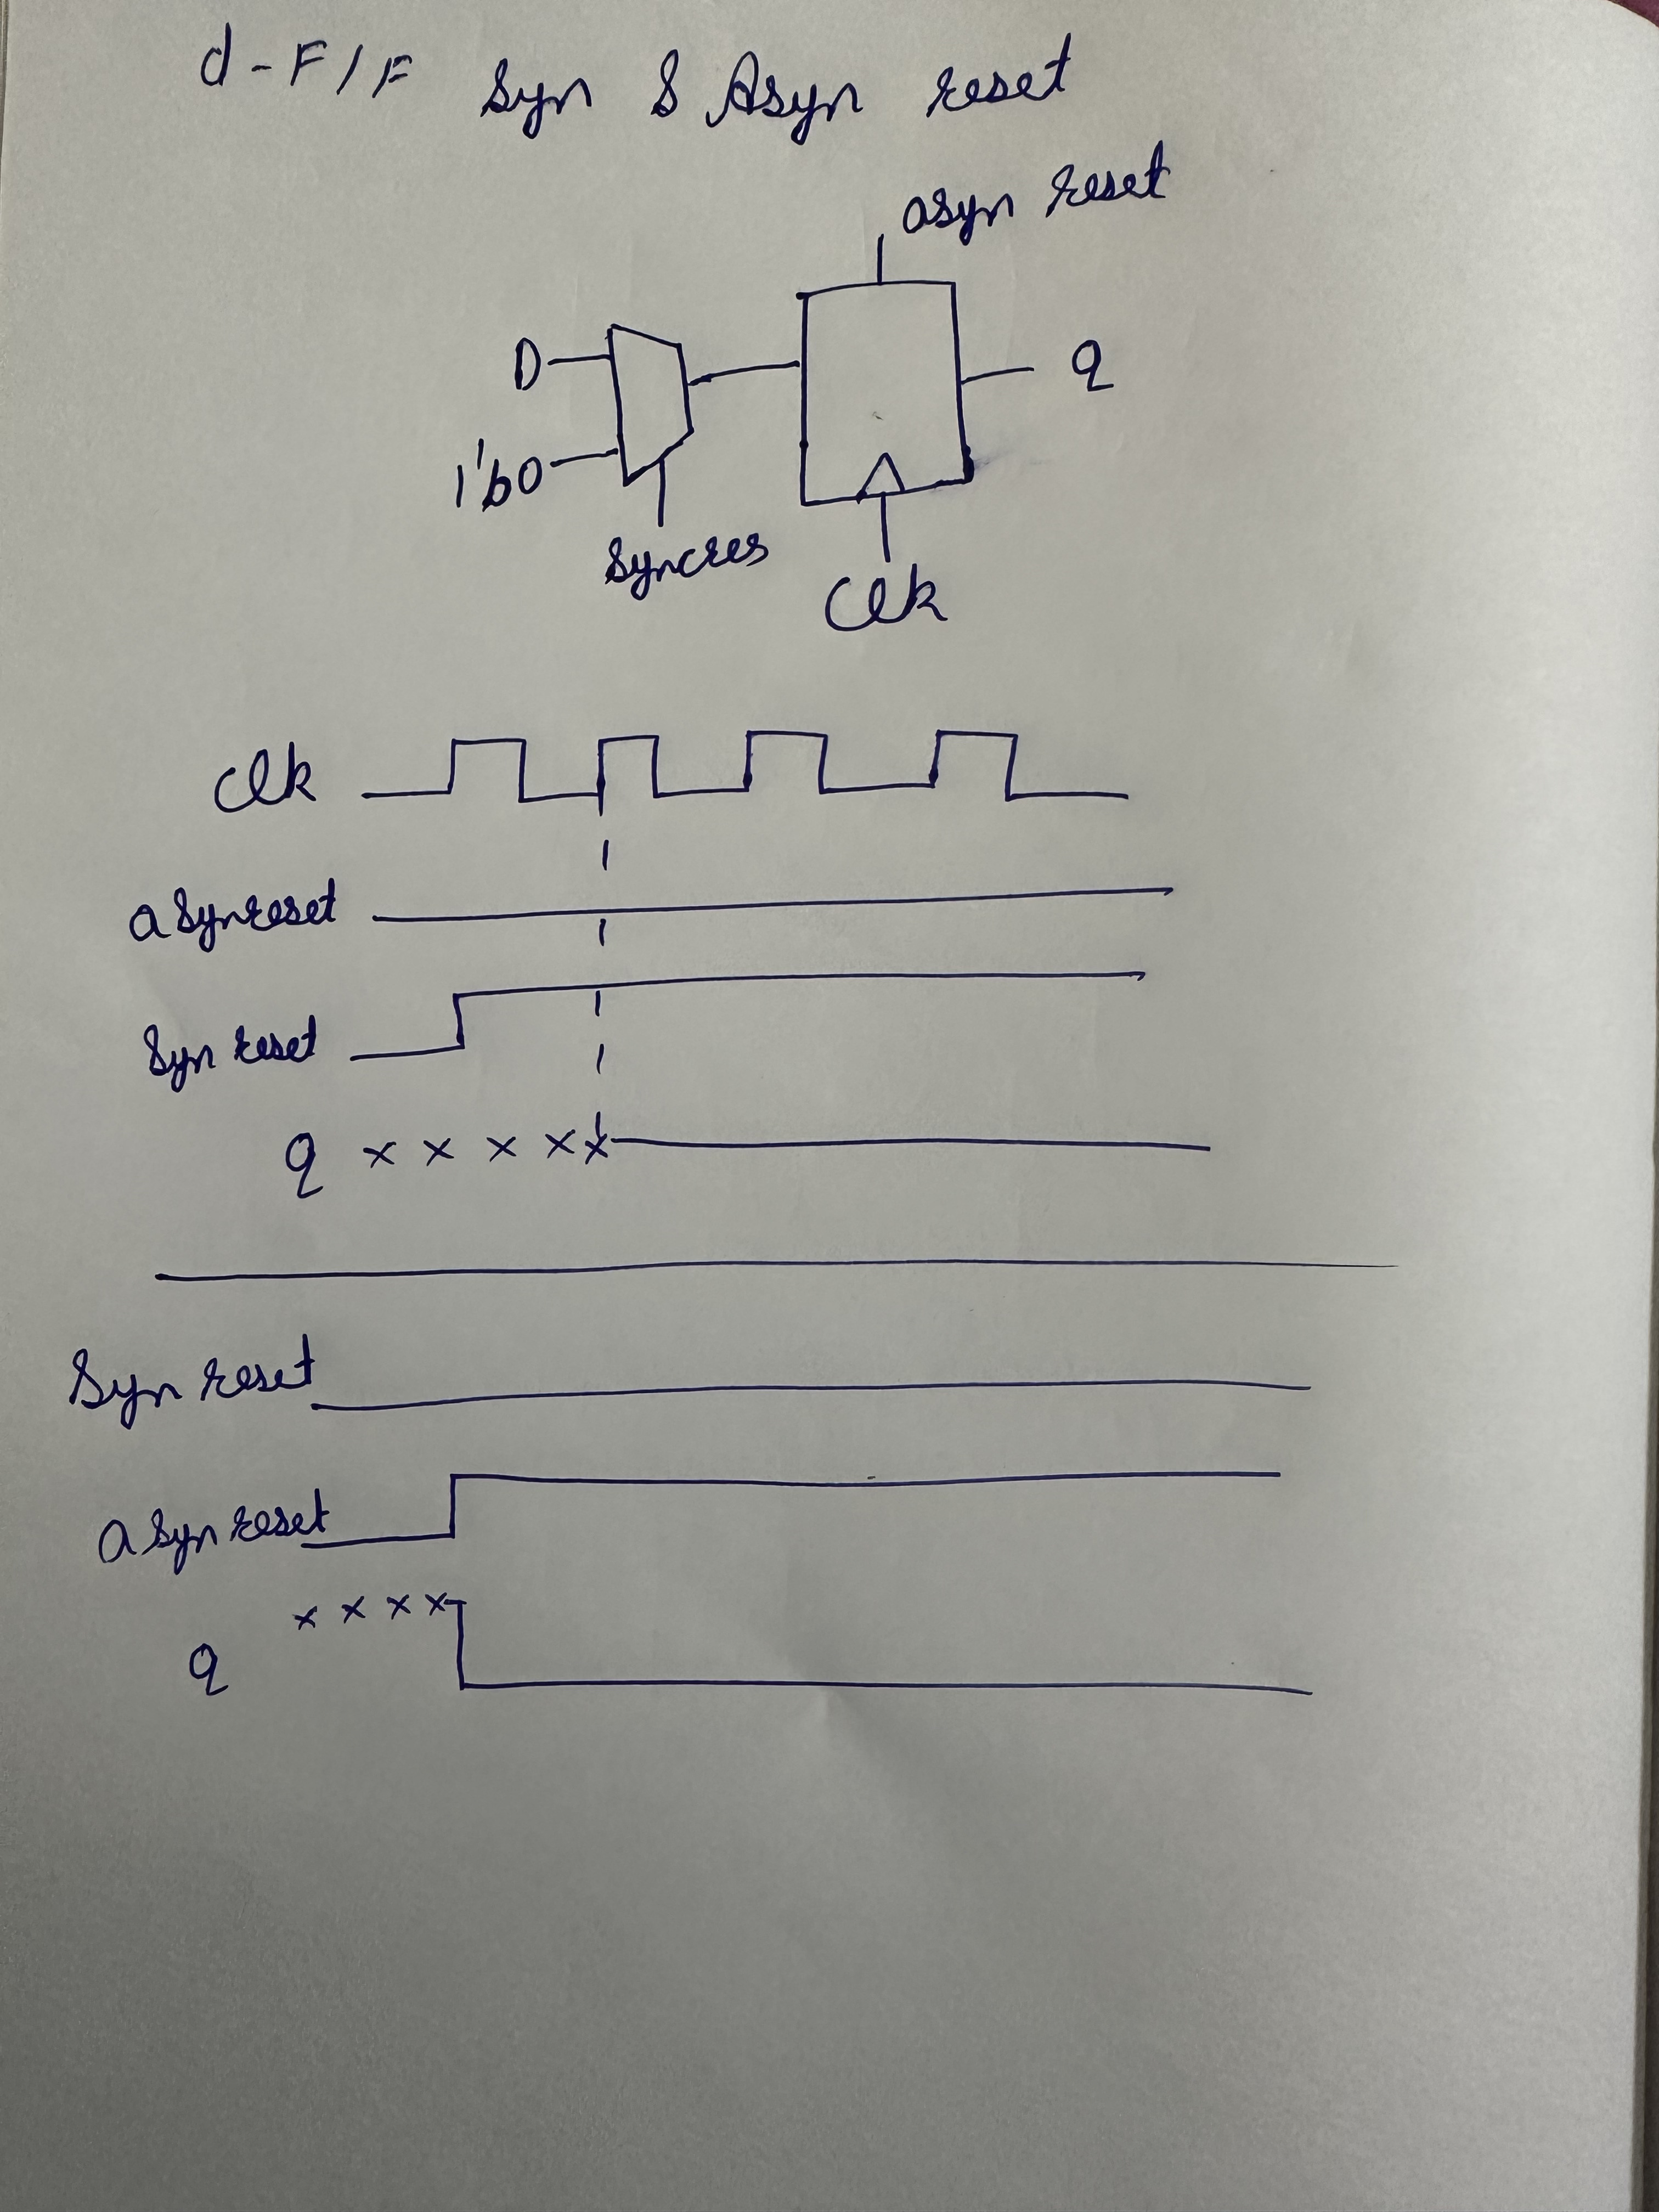 d-F/F Syn & Asyn reset
asyn reset
D
Q
1'b0
Syncres
Clk
Clk
asynreset
Syn reset
Q x x x x x
Syn reset
asyn reset
x x x x
Q